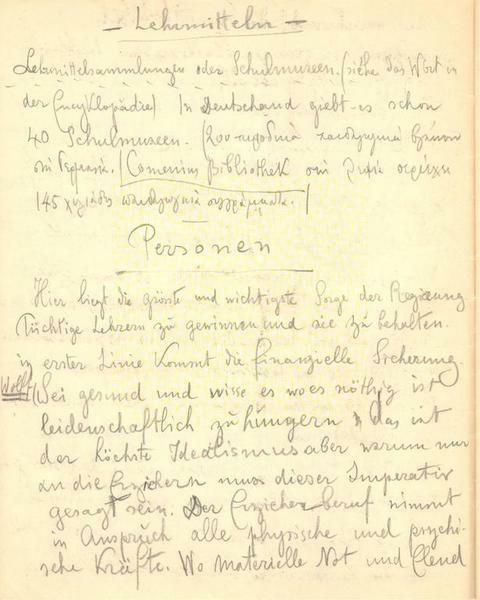 — Lehrmitteln —
Lehrmittelsammlungen oder Schulmuseen. (siehe das Wort in
der Encyklopädie) In Deutschand giebt es schon
40 Schulmuseen. (200 περιοδικά παιδαγωγικά βγαίνουν
στη Γερμανία. / Comenius Bibliothek στη Λειψία
145 χιλιάδες παιδαγωγικά συγγράμματα. /
Personen
Hier liegt die grösste und wichtigste Sorge der Regierung
Tüchtige Lehrern zu gewinnen und sie zu behalten.
in erster Linie kommt die finanzielle Sicherung.
Wolff (Sei gesund und wisse es wo es nöthig ist
leidenschaftlich zu hungern das ist
der höchste Idealismus aber warum nur
an die Erziehern muss dieser Imperativ
gesagt sein. Der Erzieherberuf nimmt
in Anspruch alle physische und psychi-
sche Kräfte. Wo materielle Not und Elend